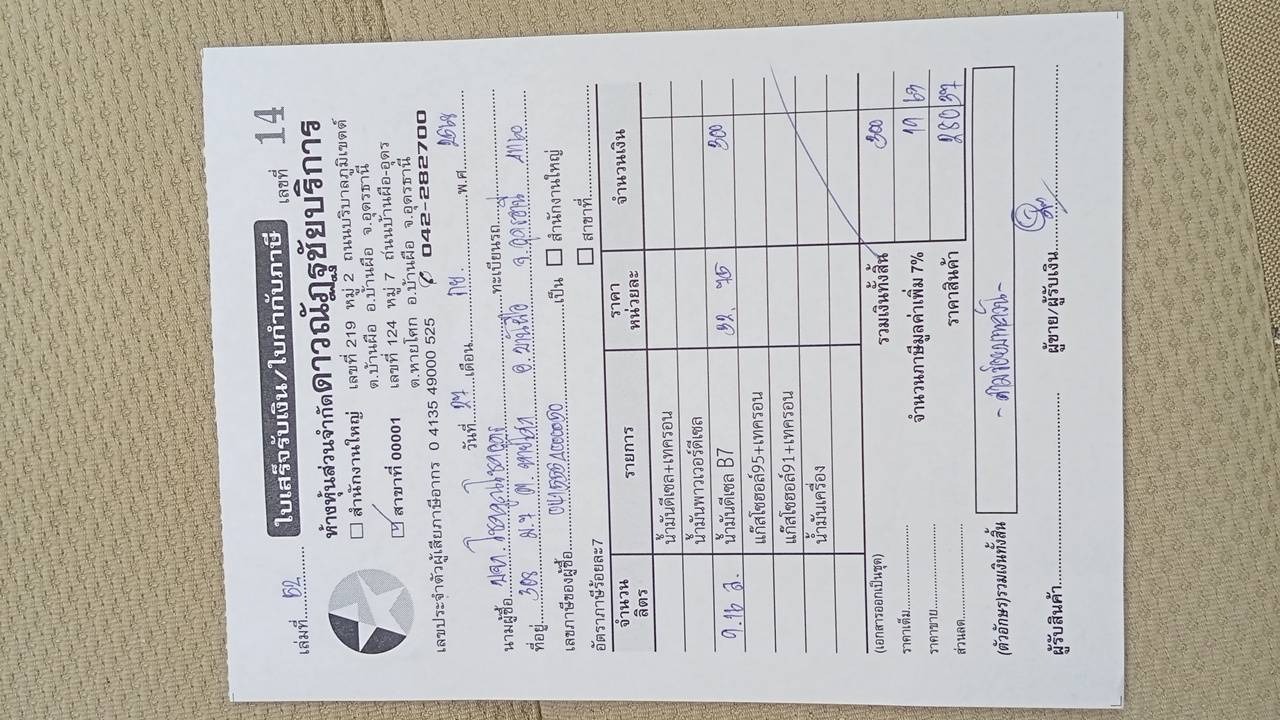 ใบเสร็จรับเงิน/ใบกำกับภาษี
เล่มที่ 52 เลขที่ 14
ห้างหุ้นส่วนจำกัดดาวณัฏฐชัยบริการ
สำนักงานใหญ่ เลขที่ 219 หมู่ 2 ถนนบริบาลภูมิเขตต์
ต.บ้านผือ อ.บ้านผือ จ.อุดรธานี
สาขาที่ 00001 เลขที่ 124 หมู่ 7 ถนนบ้านผือ-อุดร
ต.หายโศก อ.บ้านผือ จ.อุดรธานี
เลขประจำตัวผู้เสียภาษีอากร 0 4135 49000 525 042-282700
วันที่ 27 เดือน กย. พ.ศ. 2568
นามผู้ซื้อ ทะเบียนรถ
ที่อยู่ 308 ม.7 ต. หายโศก อ. บ้านผือ จ. อุดรธานี 41160
เลขภาษีของผู้ซื้อ เป็น สำนักงานใหญ่
อัตราภาษีร้อยละ7 สาขาที่
จำนวนลิตร รายการ ราคาหน่วยละ จำนวนเงิน
น้ำมันดีเซล+เทครอน
น้ำมันพาวเวอร์ดีเซล
9.16 ล. น้ำมันดีเซล B7 32. 75 300
แก๊สโซฮอล์95+เทครอน
แก๊สโซฮอล์91+เทครอน
น้ำมันเครื่อง
(เอกสารออกเป็นชุด) รวมเงินทั้งสิ้น 300
ราคาเต็ม จำนวนภาษีมูลค่าเพิ่ม 7% 19 63
ราคาขาย ราคาสินค้า 280 37
ส่วนลด
(ตัวอักษร)รวมเงินทั้งสิ้น - สามร้อยบาทถ้วน -
ผู้รับสินค้า ผู้ขาย/ผู้รับเงิน